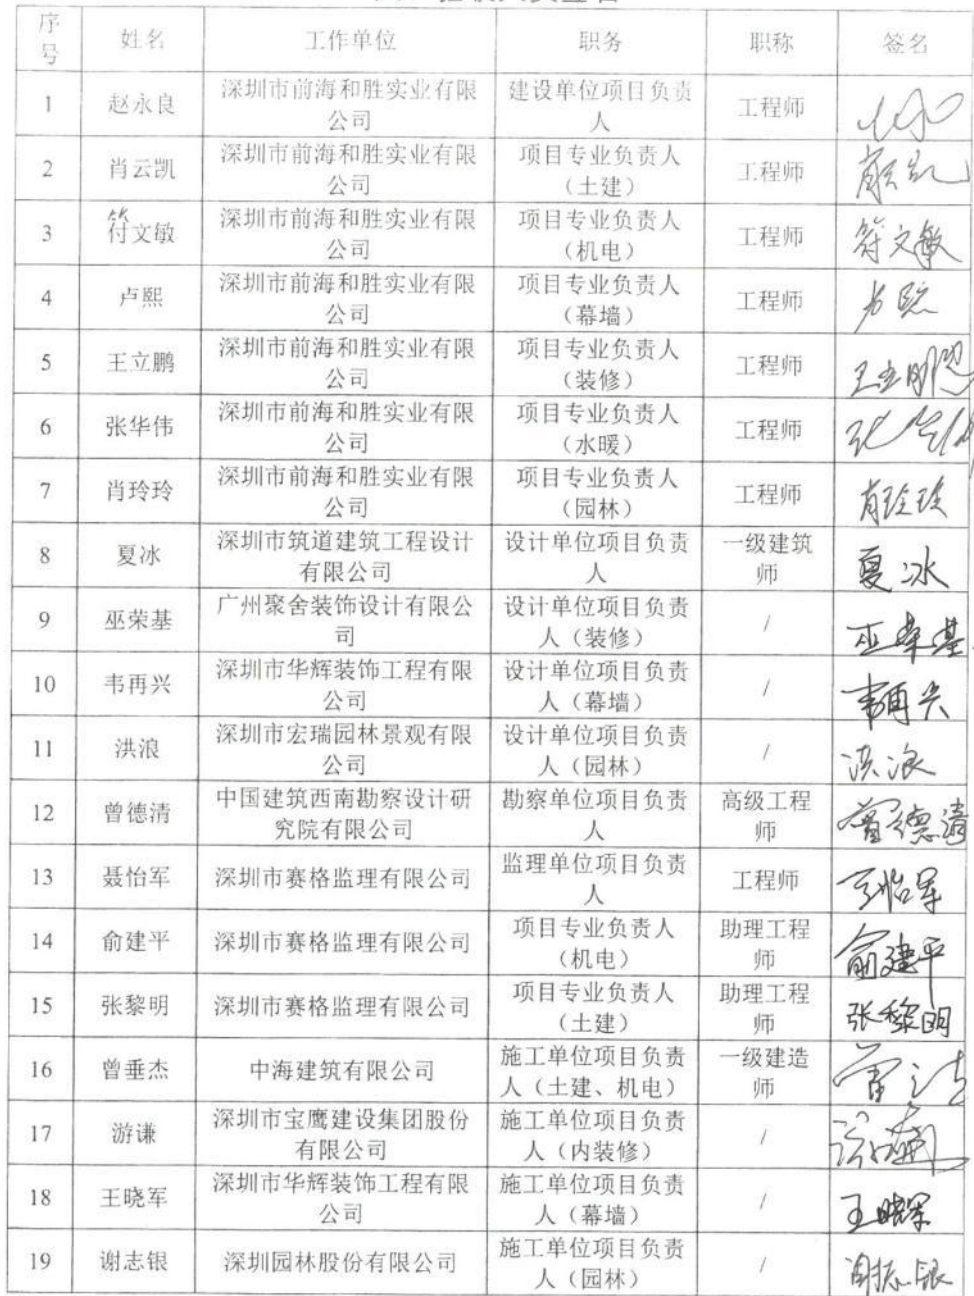 序号 姓名 工作单位 职务 职称 签名
1 赵永良 深圳市前海和胜实业有限公司 建设单位项目负责人 工程师
2 肖云凯 深圳市前海和胜实业有限公司 项目专业负责人（土建） 工程师
3 付文敏 符 深圳市前海和胜实业有限公司 项目专业负责人（机电） 工程师 符文敏
4 卢熙 深圳市前海和胜实业有限公司 项目专业负责人（幕墙） 工程师
5 王立鹏 深圳市前海和胜实业有限公司 项目专业负责人（装修） 工程师 王立鹏
6 张华伟 深圳市前海和胜实业有限公司 项目专业负责人（水暖） 工程师 张华伟
7 肖玲玲 深圳市前海和胜实业有限公司 项目专业负责人（园林） 工程师 肖玲玲
8 夏冰 深圳市筑道建筑工程设计有限公司 设计单位项目负责人 一级建筑师 夏冰
9 巫荣基 广州聚舍装饰设计有限公司 设计单位项目负责人（装修） / 巫荣基
10 韦再兴 深圳市华辉装饰工程有限公司 设计单位项目负责人（幕墙） / 韦再兴
11 洪浪 深圳市宏瑞园林景观有限公司 设计单位项目负责人（园林） / 洪浪
12 曾德清 中国建筑西南勘察设计研究院有限公司 勘察单位项目负责人 高级工程师 曾德清
13 聂怡军 深圳市赛格监理有限公司 监理单位项目负责人 工程师 聂怡军
14 俞建平 深圳市赛格监理有限公司 项目专业负责人（机电） 助理工程师 俞建平
15 张黎明 深圳市赛格监理有限公司 项目专业负责人（土建） 助理工程师 张黎明
16 曾垂杰 中海建筑有限公司 施工单位项目负责人（土建、机电） 一级建造师
17 游谦 深圳市宝鹰建设集团股份有限公司 施工单位项目负责人（内装修） /
18 王晓军 深圳市华辉装饰工程有限公司 施工单位项目负责人（幕墙） / 王晓军
19 谢志银 深圳园林股份有限公司 施工单位项目负责人（园林） / 谢志银